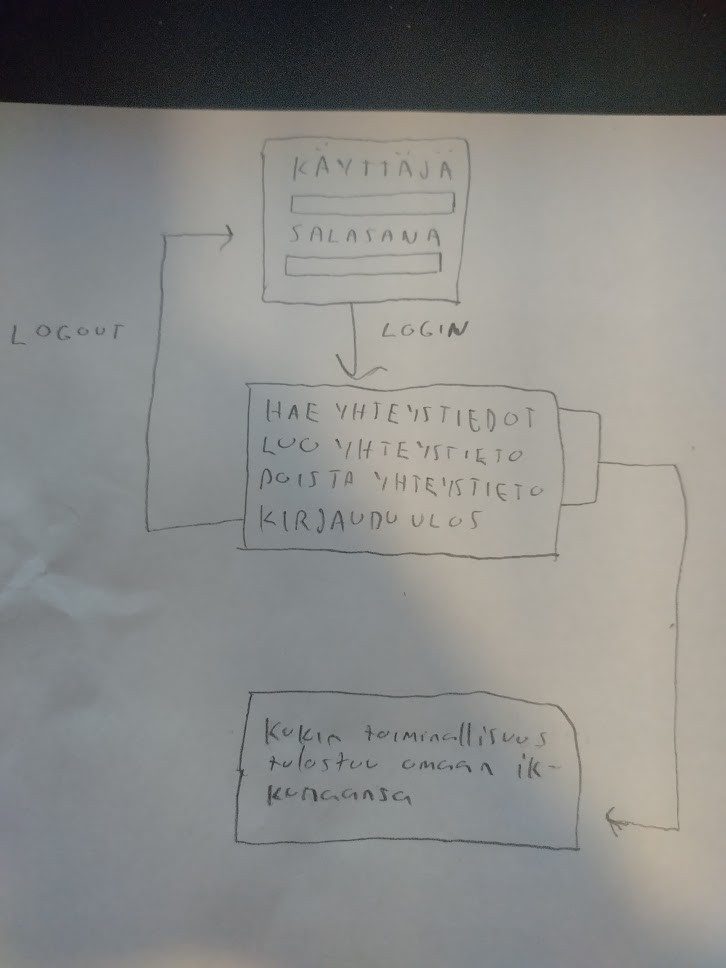 KÄYTTÄJÄ
SALASANA
LOGOUT
LOGIN
HAE YHTEYSTIEDOT
LUO YHTEYSTIETO
POISTA YHTEYSTIETO
KIRJAUDU ULOS
Kukin toiminallisuus
tulostuu omaan ik-
kunaansa